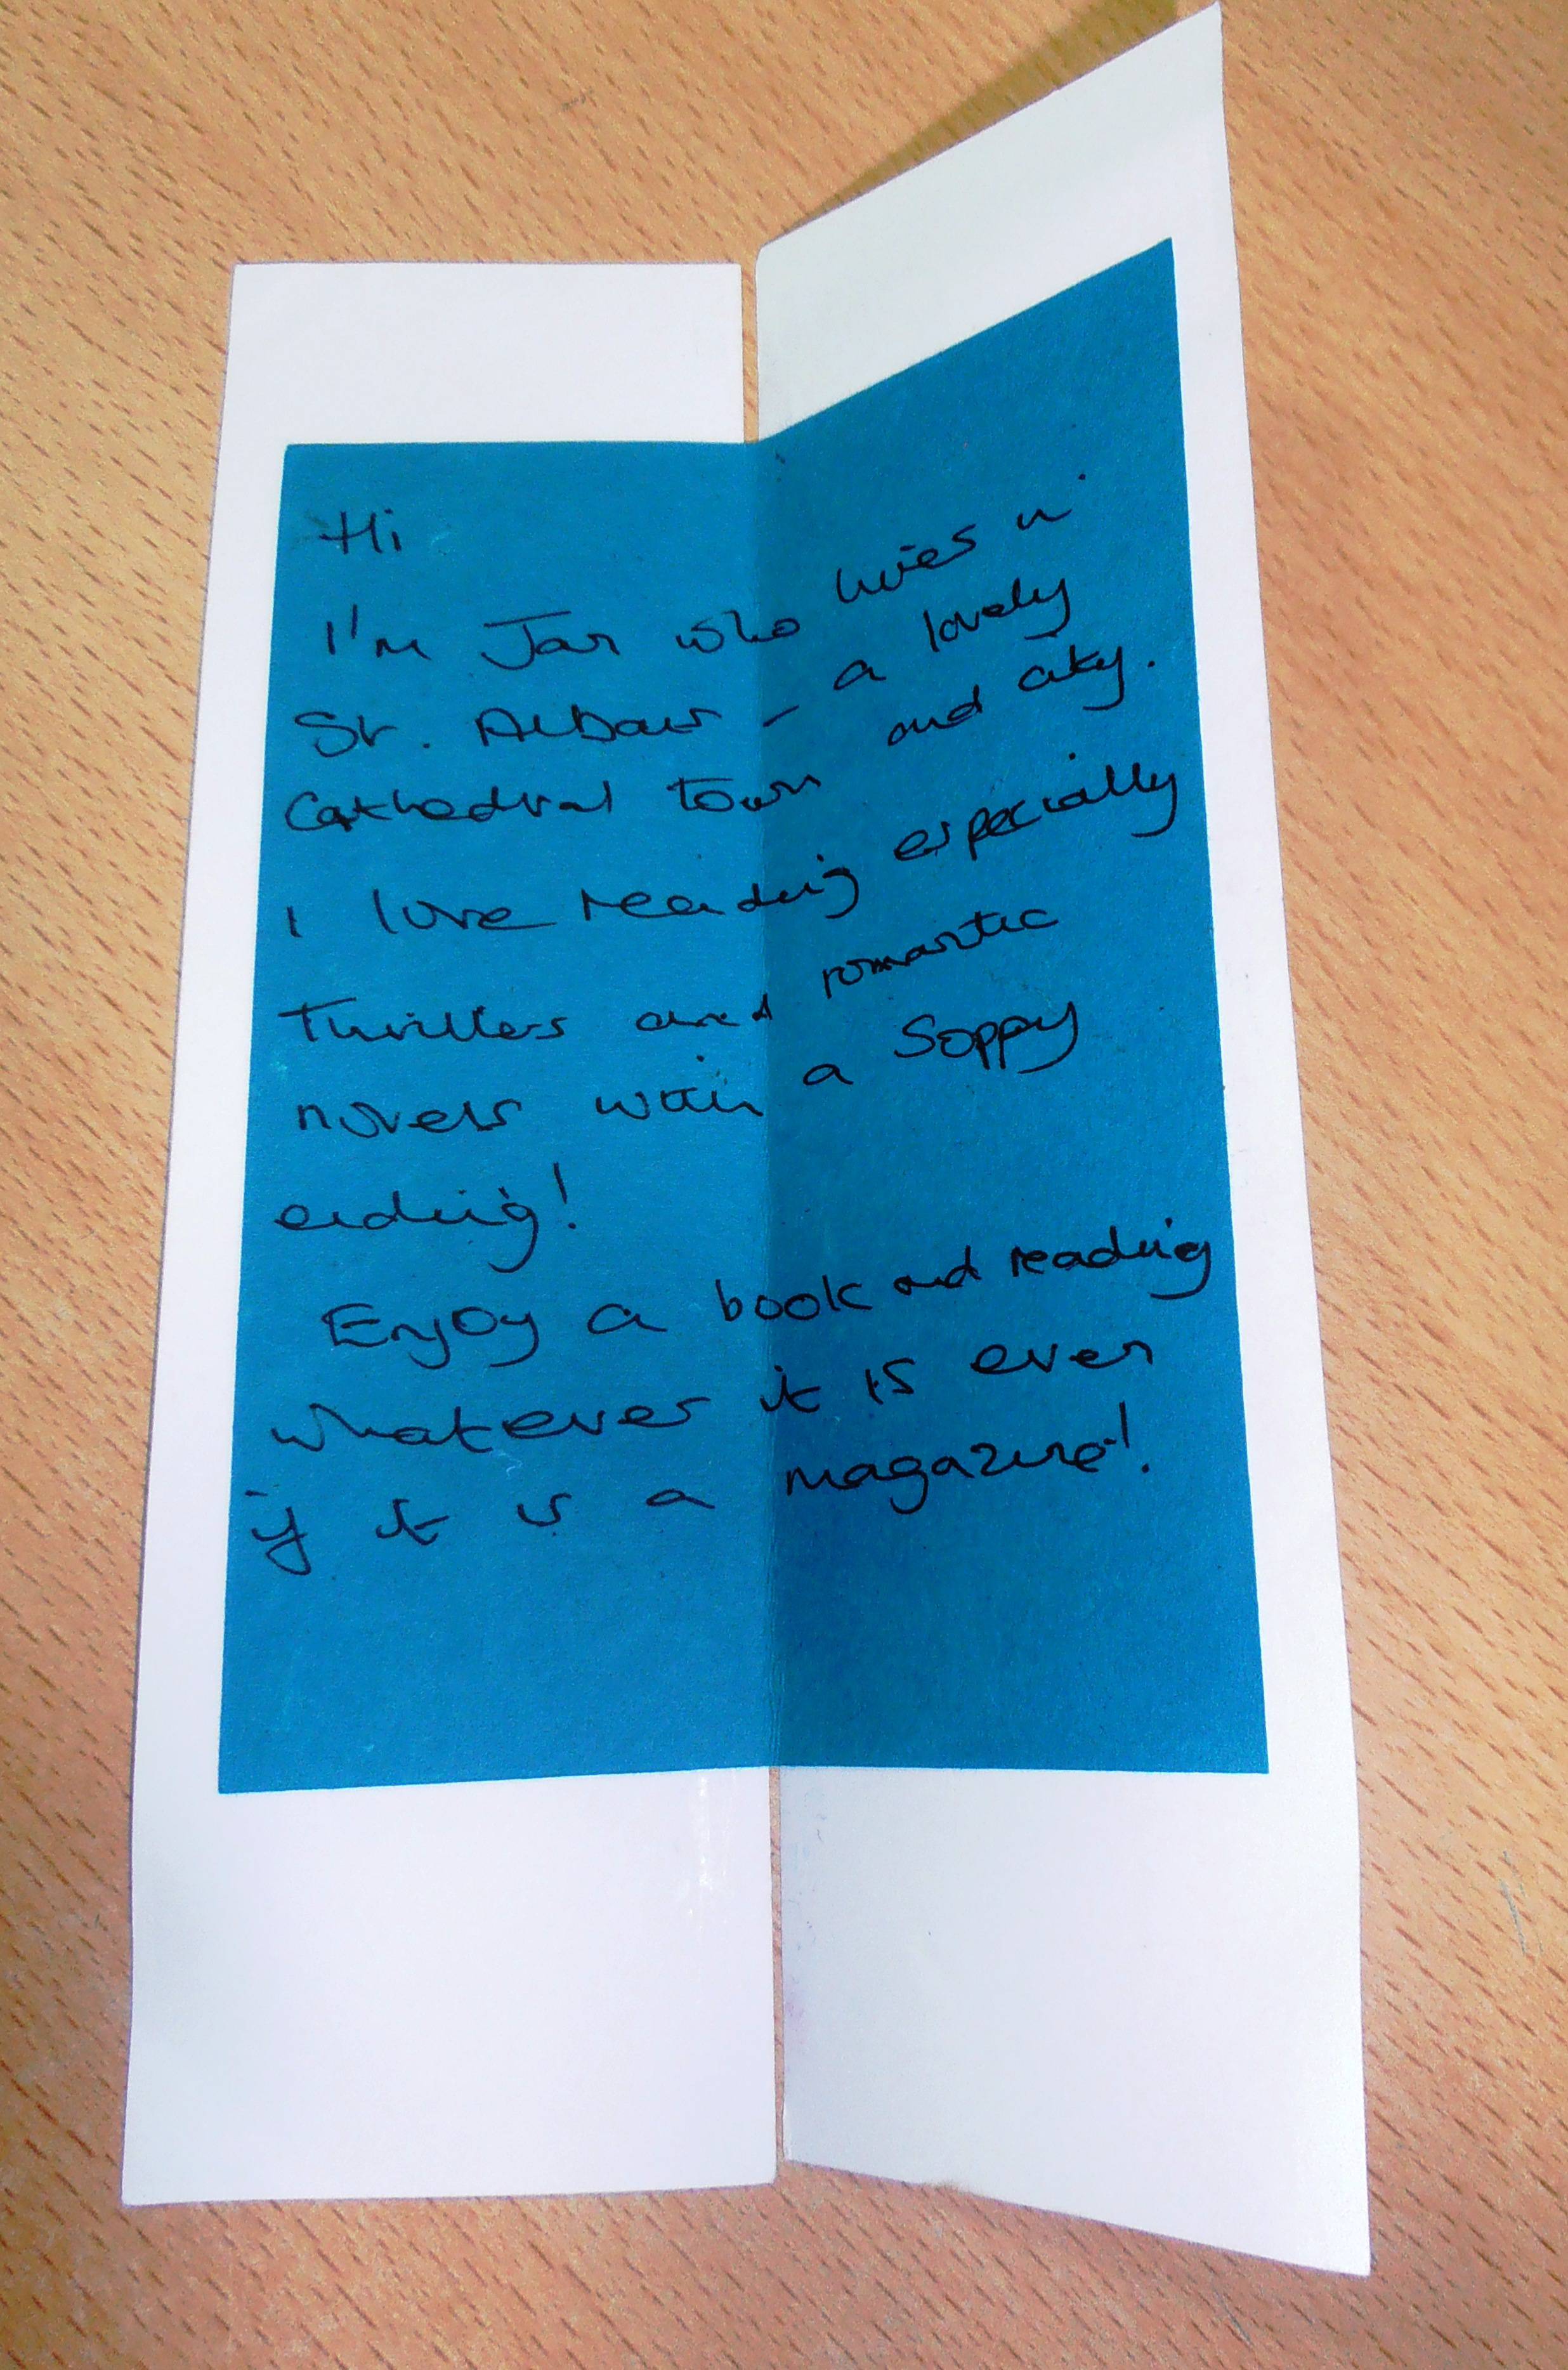 Hi
I'm Jan who lives in
St. Albans – a lovely
Cathedral town and city.
I love reading especially
thrillers and romantic
novels with a soppy
ending!
Enjoy a book and reading
whatever it is even
if it is a magazine!